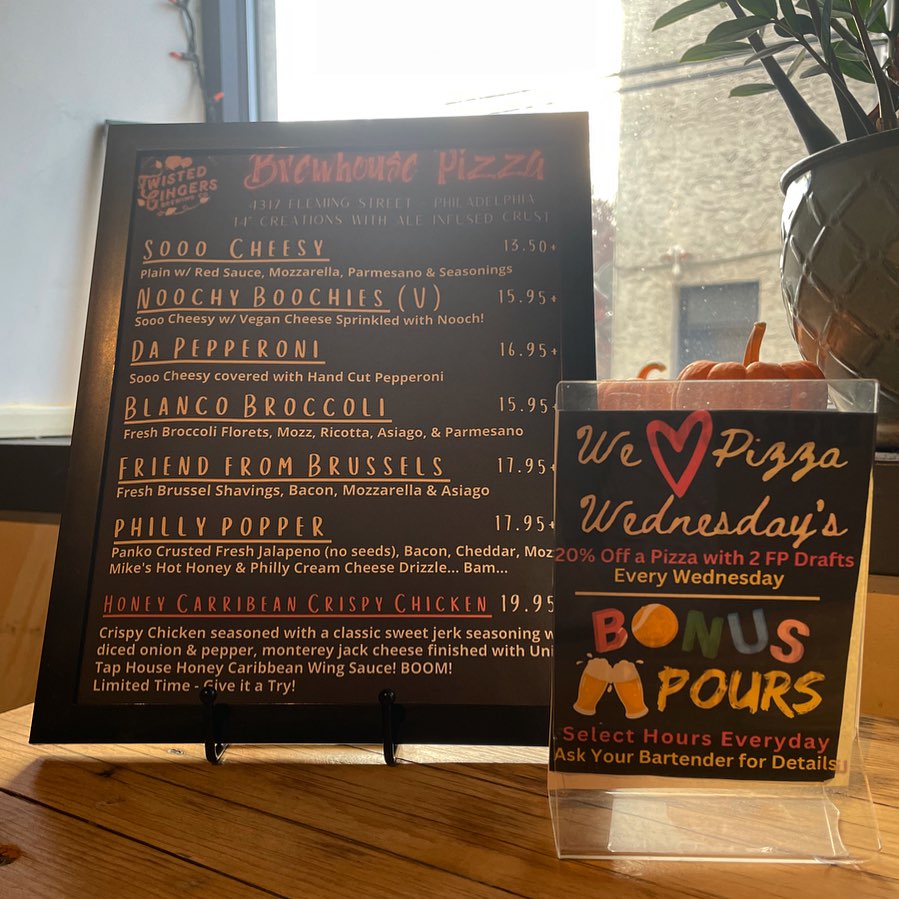 TWISTED
GINGERS
BREWING CO.
Brewhouse Pizza
4317 FLEMING STREET - PHILADELPHIA
14" CREATIONS WITH ALE INFUSED CRUST
SOOO CHEESY 13.50+
Plain w/ Red Sauce, Mozzarella, Parmesano & Seasonings
NOOCHY BOOCHIES (V) 15.95+
Sooo Cheesy w/ Vegan Cheese Sprinkled with Nooch!
DA PEPPERONI 16.95+
Sooo Cheesy covered with Hand Cut Pepperoni
BLANCO BROCCOLI 15.95+
Fresh Broccoli Florets, Mozz, Ricotta, Asiago, & Parmesano
FRIEND FROM BRUSSELS 17.95+
Fresh Brussel Shavings, Bacon, Mozzarella & Asiago
PHILLY POPPER 17.95+
Panko Crusted Fresh Jalapeno (no seeds), Bacon, Cheddar, Moz
Mike's Hot Honey & Philly Cream Cheese Drizzle... Bam...
HONEY CARRIBEAN CRISPY CHICKEN 19.95
Crispy Chicken seasoned with a classic sweet jerk seasoning w
diced onion & pepper, monterey jack cheese finished with Uni
Tap House Honey Caribbean Wing Sauce! BOOM!
Limited Time - Give it a Try!
We Pizza
Wednesday's
20% Off a Pizza with 2 FP Drafts
Every Wednesday
BONUS
POURS
Select Hours Everyday
Ask Your Bartender for Details